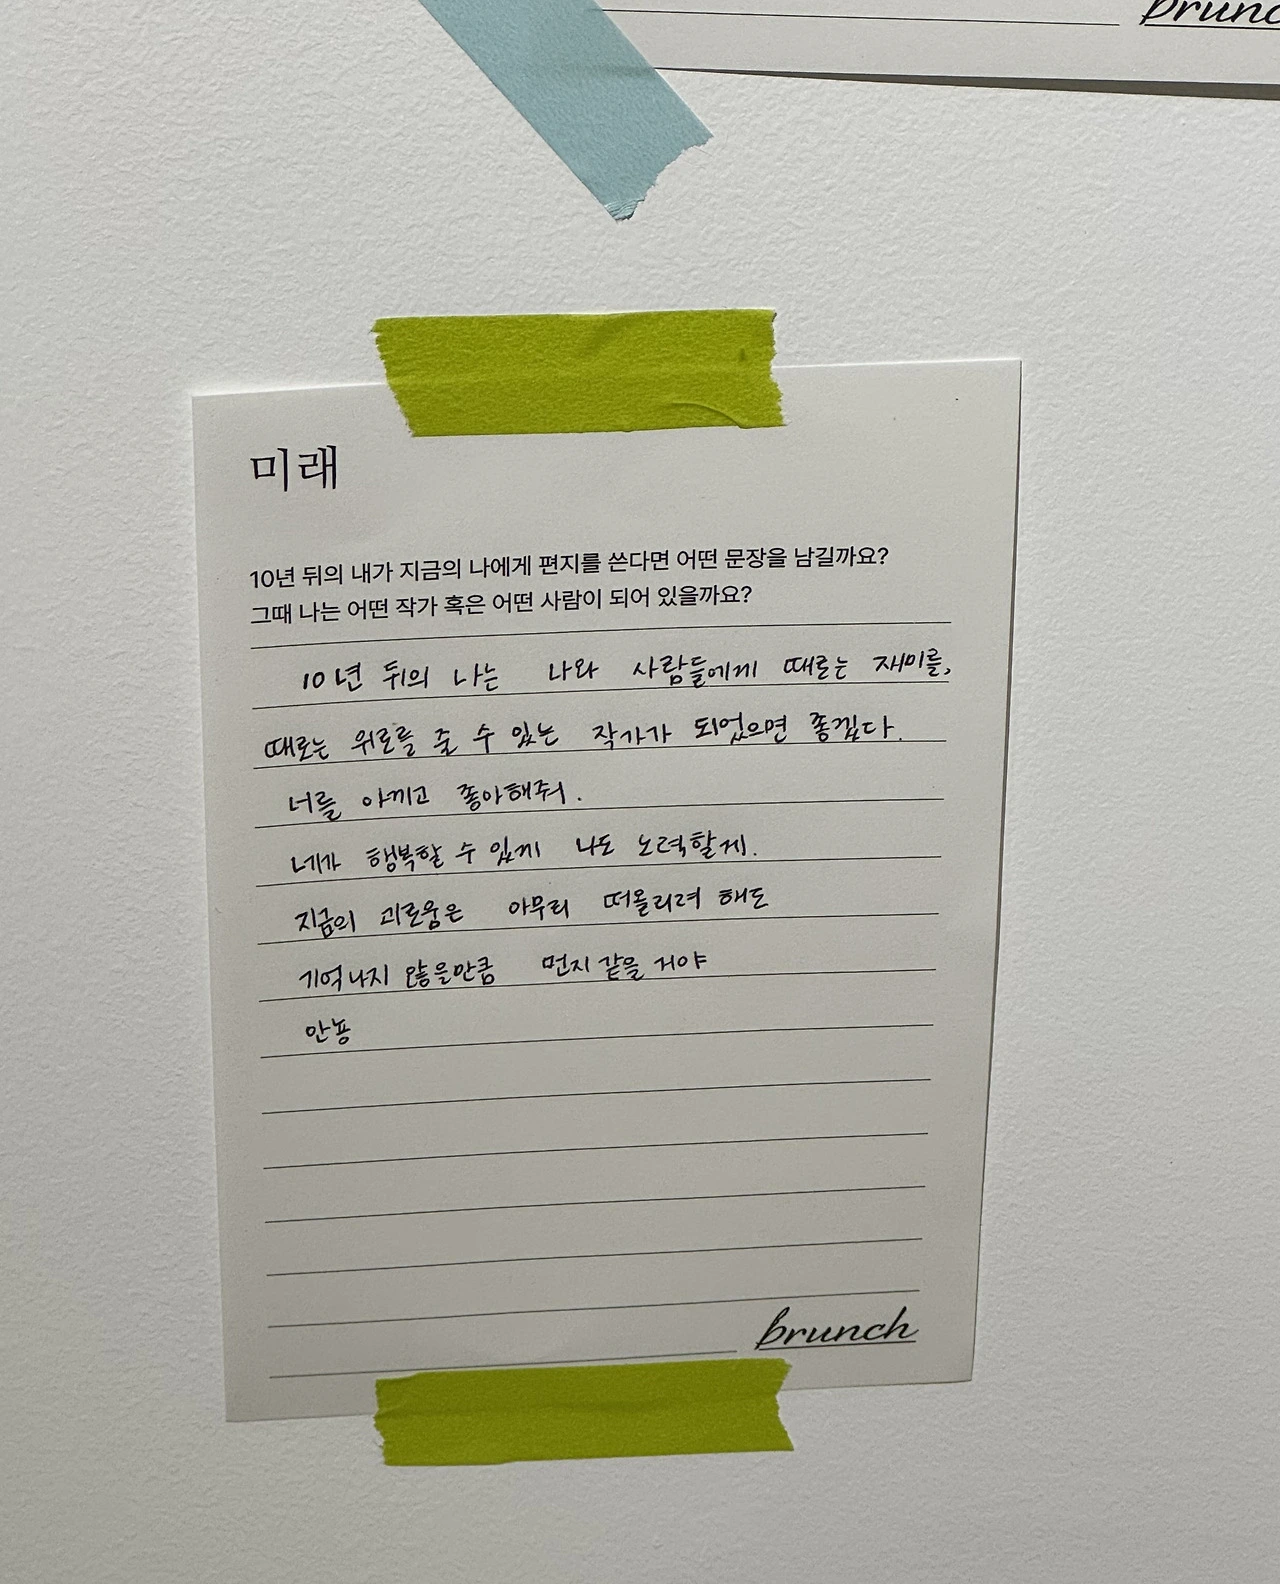 brunch
미래
10년 뒤의 내가 지금의 나에게 편지를 쓴다면 어떤 문장을 남길까요?
그때 나는 어떤 작가 혹은 어떤 사람이 되어 있을까요?
10년 뒤의 나는 나와 사람들에게 때로는 재미를,
때로는 위로를 줄 수 있는 작가가 되었으면 좋겠다.
너를 아끼고 좋아해줘.
네가 행복할 수 있게 나도 노력할게.
지금의 괴로움은 아무리 떠올리려 해도
기억나지 않을만큼 먼지 같을 거야
안뇽
brunch